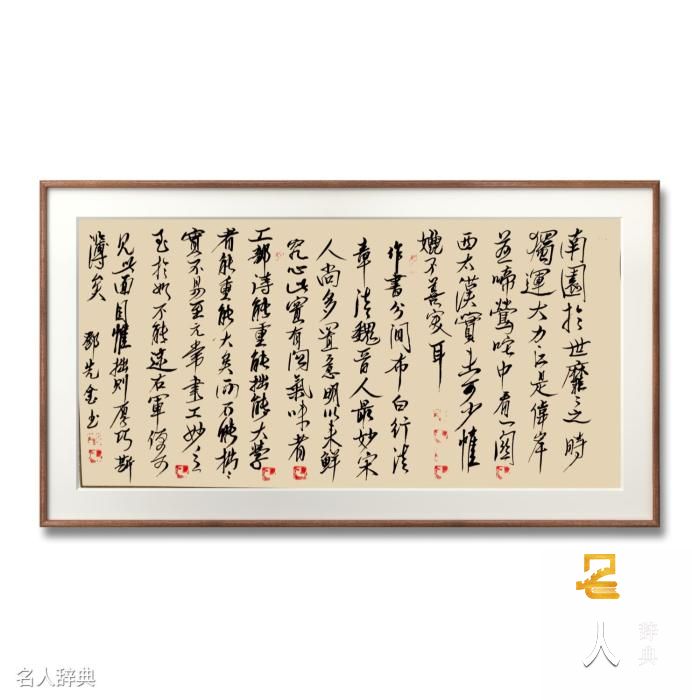 南園於世靡之時
獨運大力江是偉岸
燕啼鶯咤中有一關
西大漢實未可少惟
媿不善變耳
作書分間布白行法
章法魏晉人最妙宋
人尚多置意明以來鮮
究心此實有關氣味者
工部詩能重能拙能大學
者能重能大矣而不能拙
實不易至元常書工妙之
至於此不能遠右軍便可
見此面目惟拙則厚巧斯
薄矣 鄧先金書
名人辞典
名人 辞典